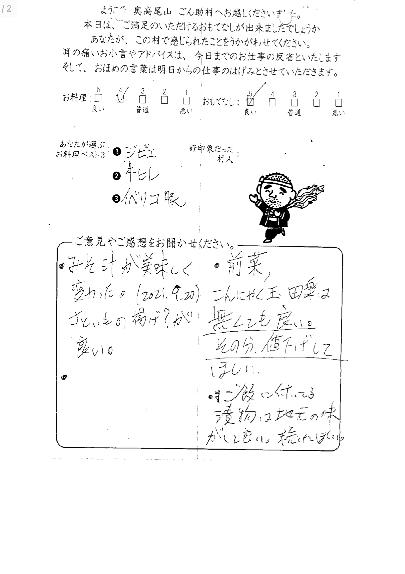 12
ようこそ 奥高尾山 ごん助村へお越しくださいました。
本日は、ご満足のいただけるおもてなしが出来ましたでしょうか
あなたが、この村で感じられたことをうかがわせてください。
耳の痛いお小言やアドバイスは、今日までのお仕事の反省といたします
そして、おほめの言葉は明日からの仕事のはげみとさせていただきます。
お料理: 5 4 3 2 1 おもてなし: 5 4 3 2 1
良い 普通 悪い 良い 普通 悪い
あなたが選ぶ
お料理ベスト3
❶ジビエ
❷牛ヒレ
❸イベリコ豚
好印象だった
村人
ご意見やご感想をお聞かせください。
・みそ汁が美味しく
変わった。(2021.9.20)
揚げ?が
・前菜、
こんにゃく玉 田楽は
無くても良い。
その分、値下げして
ほしい。
・ご飯に付いてる
漬物は地元の味
がして良い。続けてほしい。